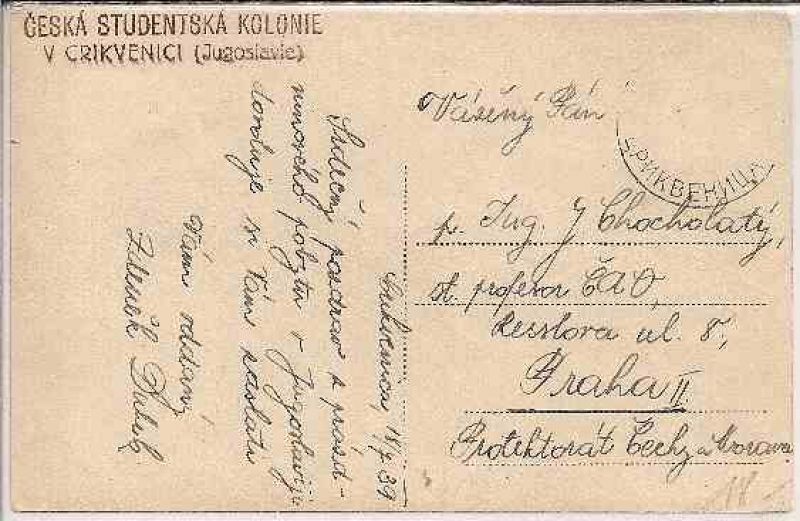 ČESKÁ STUDENTSKÁ KOLONIE
V CRIKVENICI (Jugoslavie)
Crikvenica, 18/7 39
Srdečný pozdrav z prázd-
ninového pobytu v Jugoslavii
dovoluje si Vám zaslati
Vám oddaný
Zdeněk
Vážený Pán
p. Ing. J Chocholatý,
st. profesor
Resslova ul. 8,
Praha II
Protektorát Čechy a Morava
ЦРИКВЕНИЦА